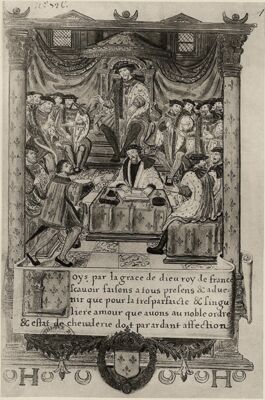 Loys par la grace de dieu roy de france
scavoir faisons a tous presens & adve-
nir que pour la tresparfaicte & singu
liere amour que avons au noble ordre
& estat de chevalerie dont par ardant affection
H
H